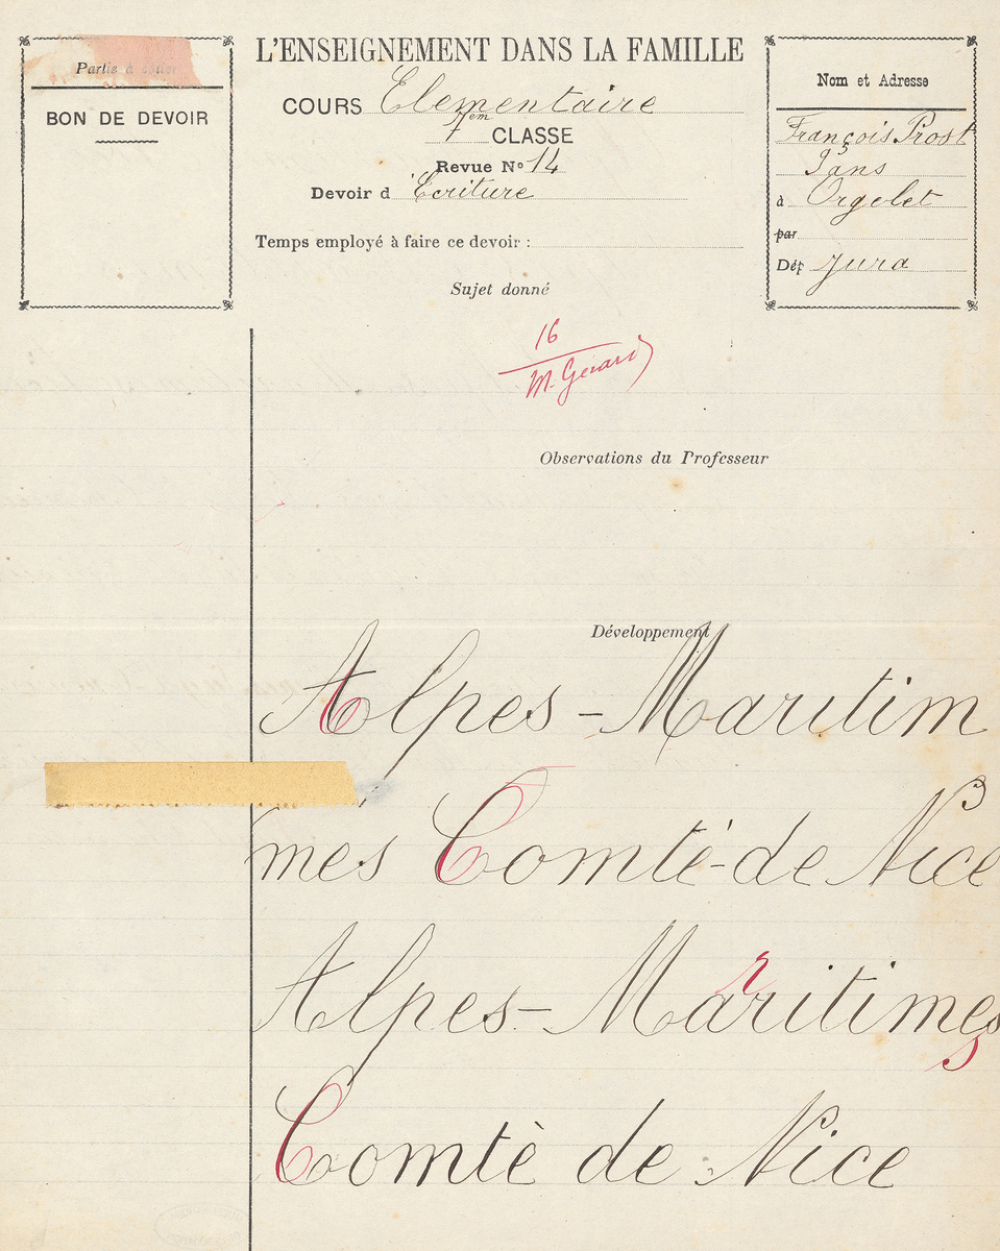 L'ENSEIGNEMENT DANS LA FAMILLE
Partie à coller
BON DE DEVOIR
COURS Elementaire
7em CLASSE
Revue No 14
Devoir d'Ecriture
Temps employé à faire ce devoir :
Sujet donné
Nom et Adresse
François Prost
9 ans
à Orgelet
par
Dép Jura
16
M. Gérard
Observations du Professeur
Développement
Alpes-Maritim
mes Comtè-de Nice
Alpes-Maritimes
r
s
Comtè de Nice